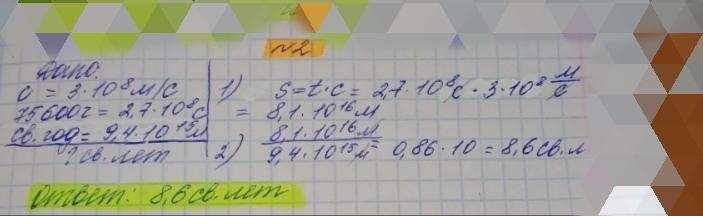 №2
Дано:
c = 3·10⁸ м/с
75600ч = 2,7·10⁸с
св.год = 9,4·10¹⁵м
? св. лет
1) S=t·c = 2,7·10⁸с · 3·10⁸ м/с
= 8,1·10¹⁶м
2) 8,1·10¹⁶м / 9,4·10¹⁵м = 0,86·10 = 8,6св.л
Ответ: 8,6 св. лет